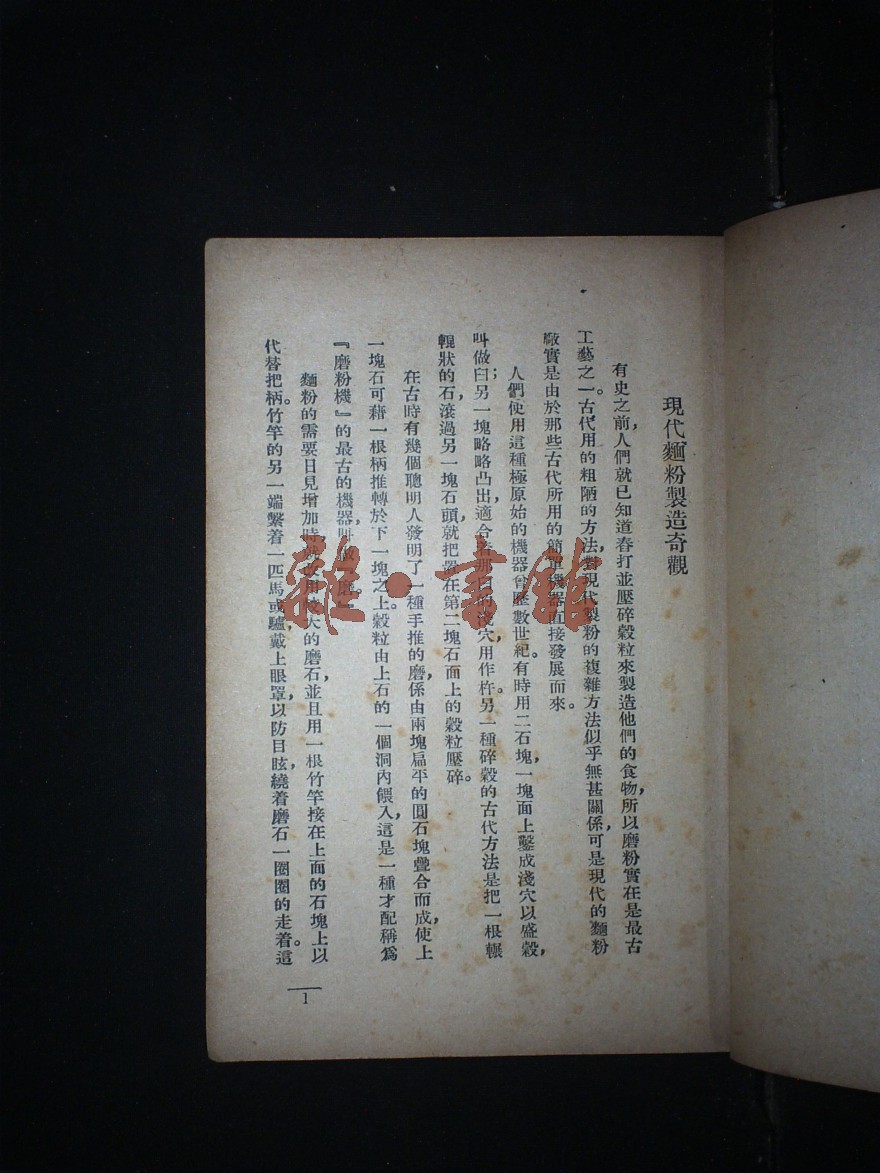 現代麵粉製造奇觀
有史之前,人們就已知道舂打並壓碎穀粒來製造他們的食物,所以磨粉實在是最古
工藝之一。古代用的粗陋的方法,對現代製粉的複雜方法似乎無甚關係,可是現代的麵粉
廠實是由於那些古代所用的簡單機器直接發展而來。
人們使用這種極原始的機器曾歷數世紀。有時用二石塊,一塊面上鑿成淺穴以盛穀,
叫做臼;另一塊略略凸出,適合着那臼的淺穴,用作杵。另一種碎穀的古代方法是把一根輾
輥狀的石,滾過另一塊石頭,就把置在第二塊石面上的穀粒壓碎。
在古時有幾個聰明人發明了一種手推的磨,係由兩塊扁平的圓石塊疊合而成,使上
一塊石可藉一根柄推轉於下一塊之上。穀粒由上石的一個洞內餵入,這是一種才配稱爲
『磨粉機』的最古的機器,叫做『磨。』
麵粉的需要日見增加時,就改用較大的磨石,並且用一根竹竿接在上面的石塊上以
代替把柄。竹竿的另一端繫着一匹馬或驢,戴上眼罩,以防目眩,繞着磨石一圈圈的走着。這
1
雜·書館